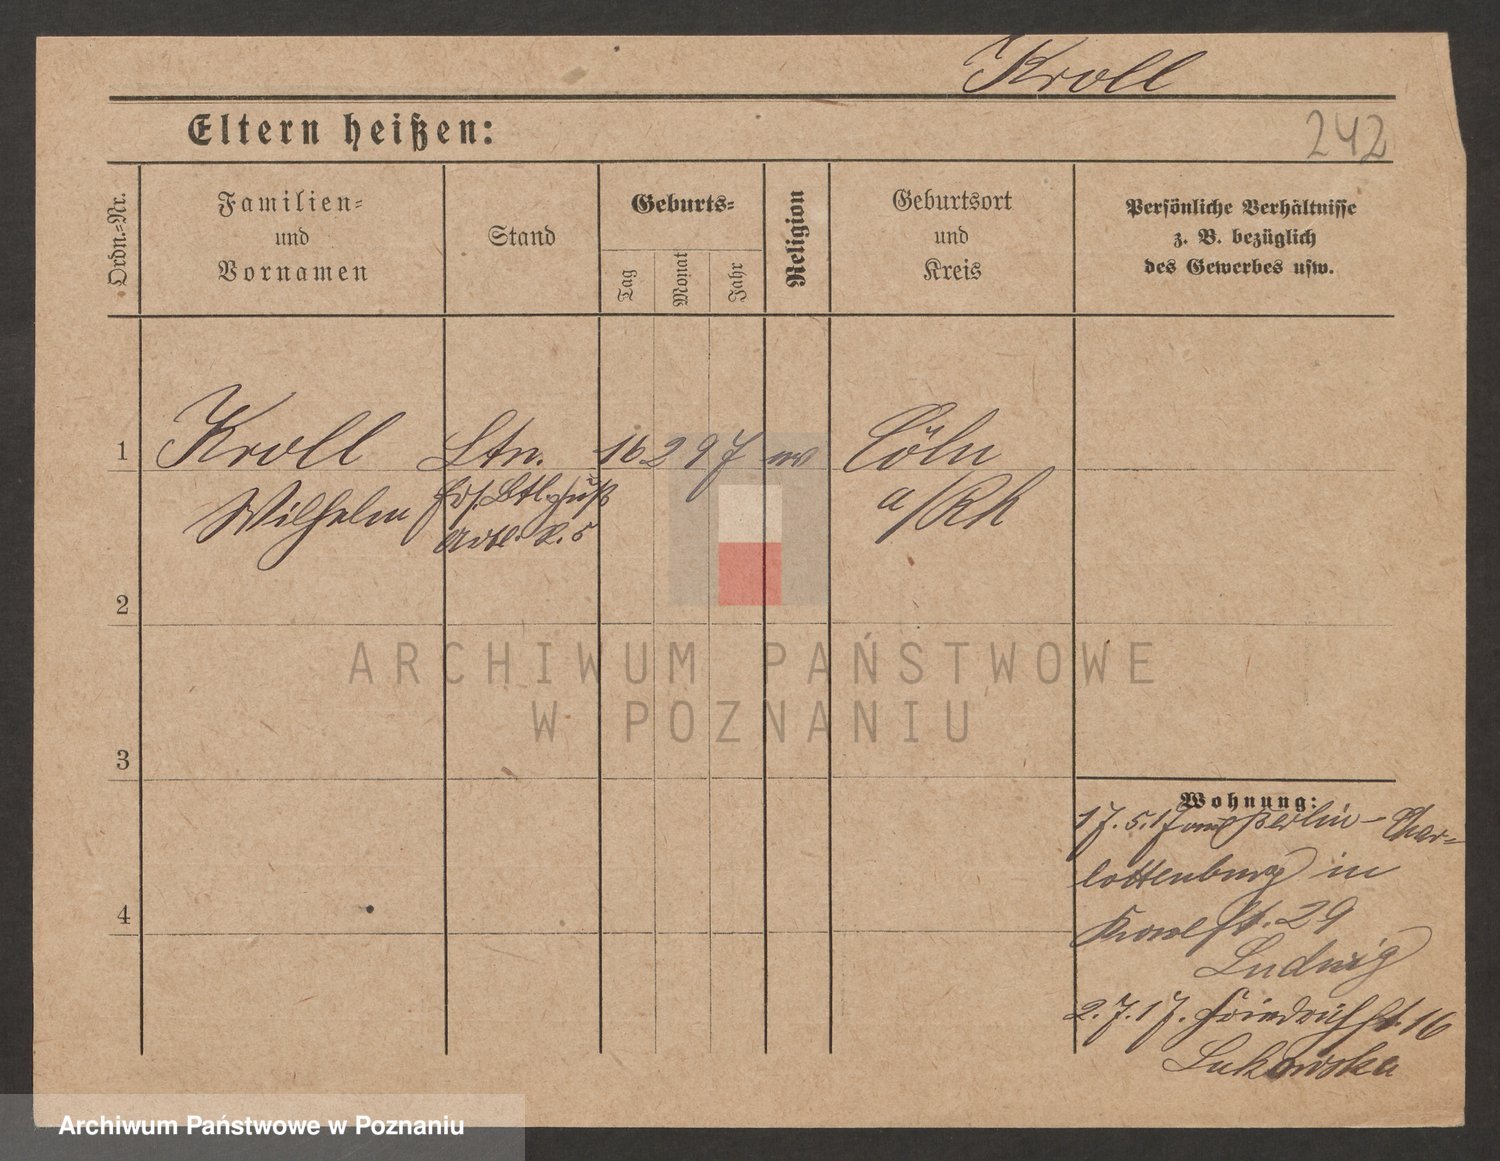 Kroll
Eltern heißen:
242
Ordn.-Nr.
Familien-
und
Vornamen
Stand
Geburts-
Tag
Monat
Jahr
Religion
Geburtsort
und
Kreis
Persönliche Verhältnisse
z. B. bezüglich
des Gewerbes usw.
1
Kroll
Wilhelm
Ltn.
Ers. Btl. Fuß
Artl. R. 5
16 2 97
Cöln
a/Rh
2
3
4
Wohnung:
17.5.17 Berlin-Char-
lottenburg in
29
Ludwig
2.7.17. Friedrichst. 16
Lukowska
ARCHIWUM PAŃSTWOWE
W POZNANIU
Archiwum Państwowe w Poznaniu